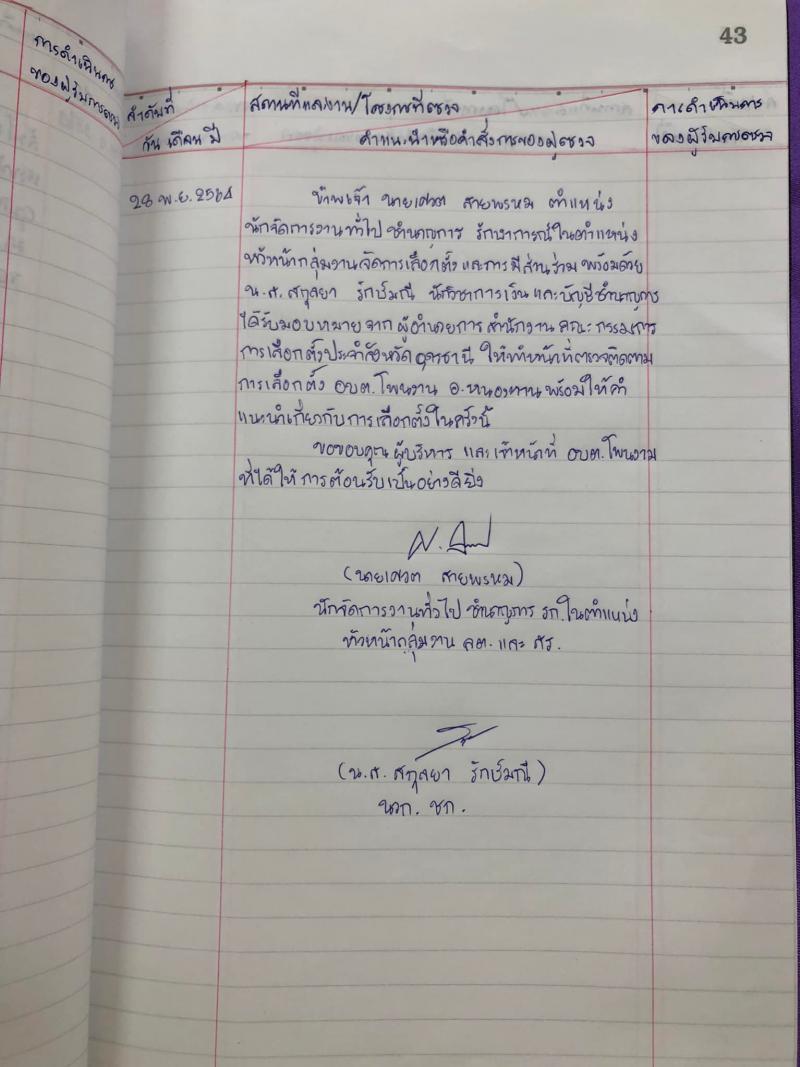 43
การดำเนินการ
ของผู้รับการตรวจ
ลำดับที่
วัน เดือน ปี
สถานที่และงาน/โครงการที่ตรวจ
คำแนะนำหรือคำสั่งการของผู้ตรวจ
การดำเนินการ
ของผู้รับการตรวจ
28 พ.ย. 2564
ข้าพเจ้า นายเศวต สายพรหม ตำแหน่ง
นักจัดการงานทั่วไป ชำนาญการ รักษาการณ์ในตำแหน่ง
หัวหน้ากลุ่มงานจัดการเลือกตั้ง และการมีส่วนร่วม พร้อมด้วย
น.ส. สกุลยา รักษ์มณี นักวิชาการเงินและบัญชีชำนาญการ
ได้รับมอบหมายจาก ผู้อำนวยการ สำนักงาน คณะกรรมการ
การเลือกตั้งประจำจังหวัดอุดรธานี ให้ทำหน้าที่ตรวจติดตาม
การเลือกตั้ง อบต.โพนงาม อ.หนองหาน พร้อมให้คำ
แนะนำเกี่ยวกับการเลือกตั้งในครั้งนี้
ขอขอบคุณ ผู้บริหาร และเจ้าหน้าที่ อบต.โพนงาม
ที่ได้ให้การต้อนรับเป็นอย่างดียิ่ง
(นายเศวต สายพรหม)
นักจัดการงานทั่วไป ชำนาญการ รก.ในตำแหน่ง
หัวหน้ากลุ่มงาน ลต. และ สร.
(น.ส. สกุลยา รักษ์มณี)
นวก. ชก.